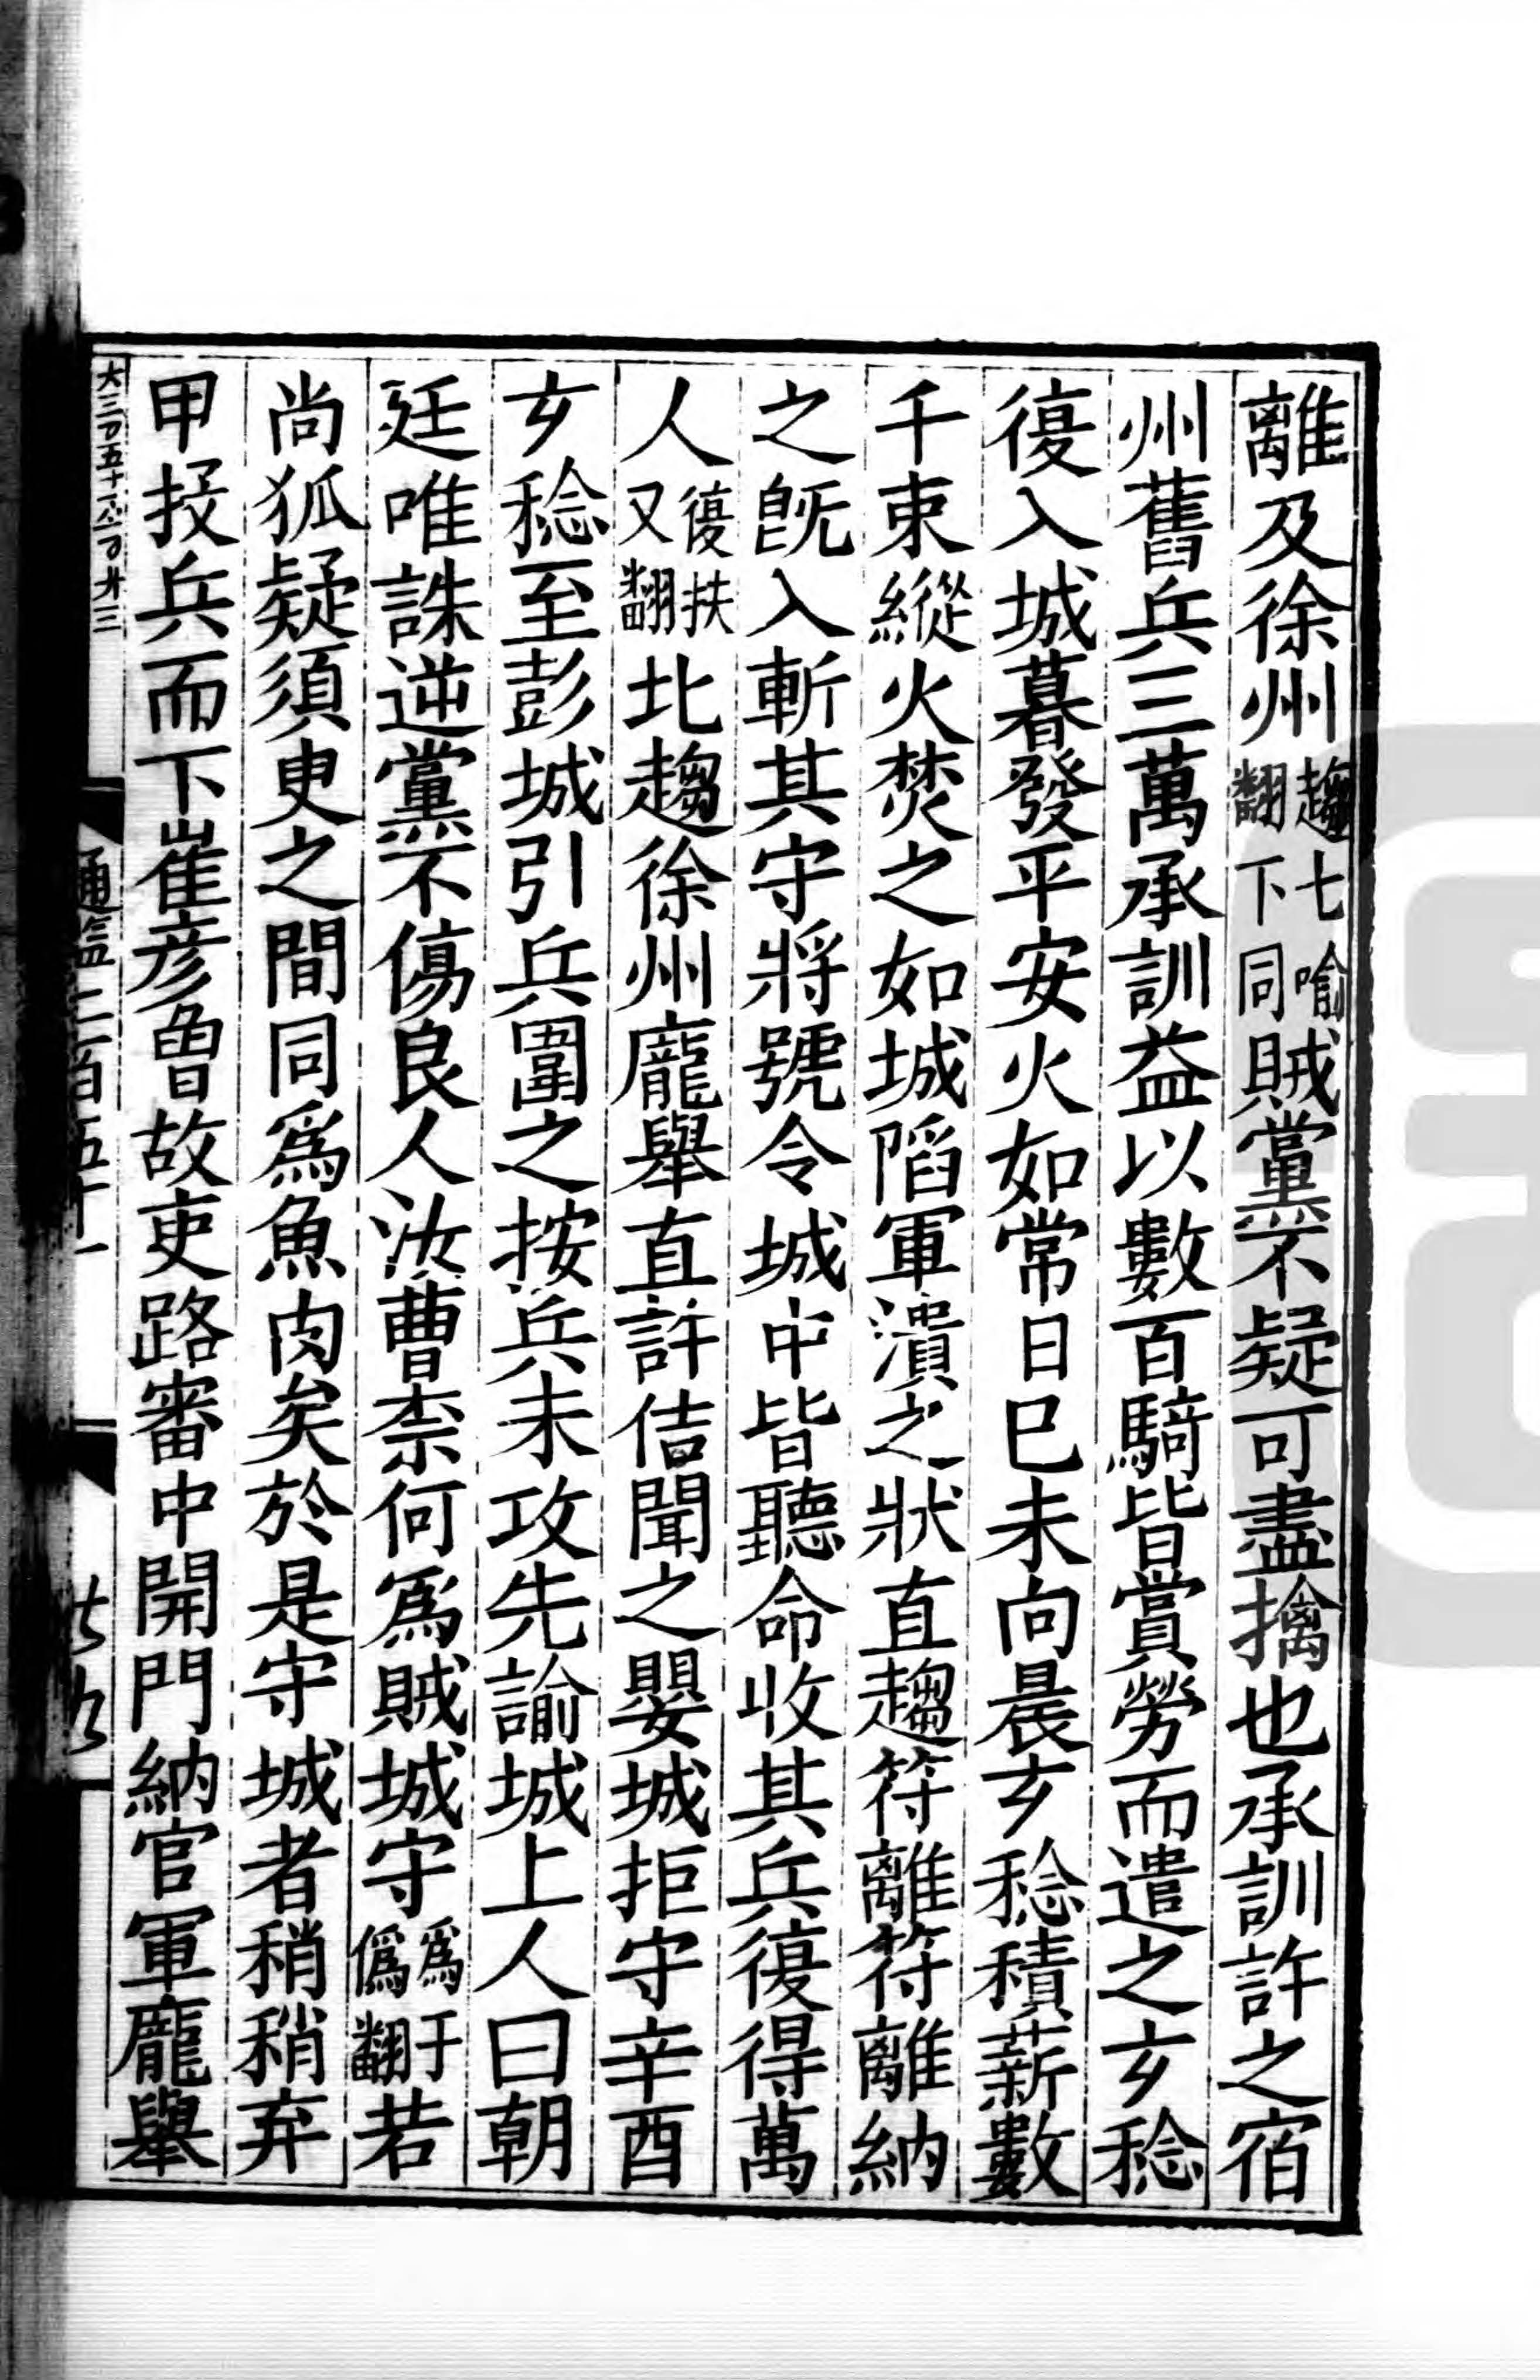 離及徐州趨七喻翻下同賊黨不疑可盡擒也承訓許之宿
州舊兵三萬承訓益以數百騎皆賞勞而遣之玄稔
復入城暮發平安火如常日巳未向晨玄稔積薪數
千束縱火焚之如城陷軍潰之狀直趨符離符離納
之旣入斬其守將號令城中皆聽命收其兵復得萬
人復扶又翻北趨徐州龐舉直許佶聞之嬰城拒守辛酉
玄稔至彭城引兵圍之按兵未攻先諭城上人曰朝
廷唯誅逆黨不傷良人汝曹柰何爲賊城守爲于僞翻若
尚狐疑須臾之間同爲魚肉矣於是守城者稍稍弃
甲投兵而下崔彥曾故吏路審中開門納官軍龐舉
通鑑二百五十一